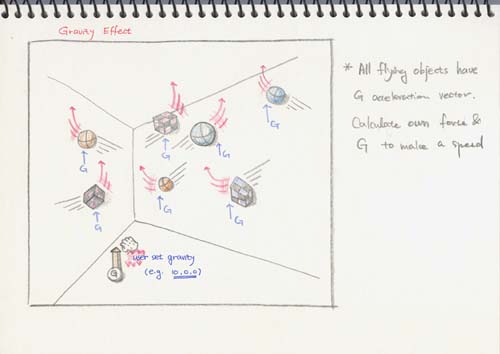 Gravity Effect
* All flying objects have
G acceleration vector.
Calculate own force &
G to make a speed
G
G
G
G
G
G
G
G
user set gravity
(e.g. 10,0,0)